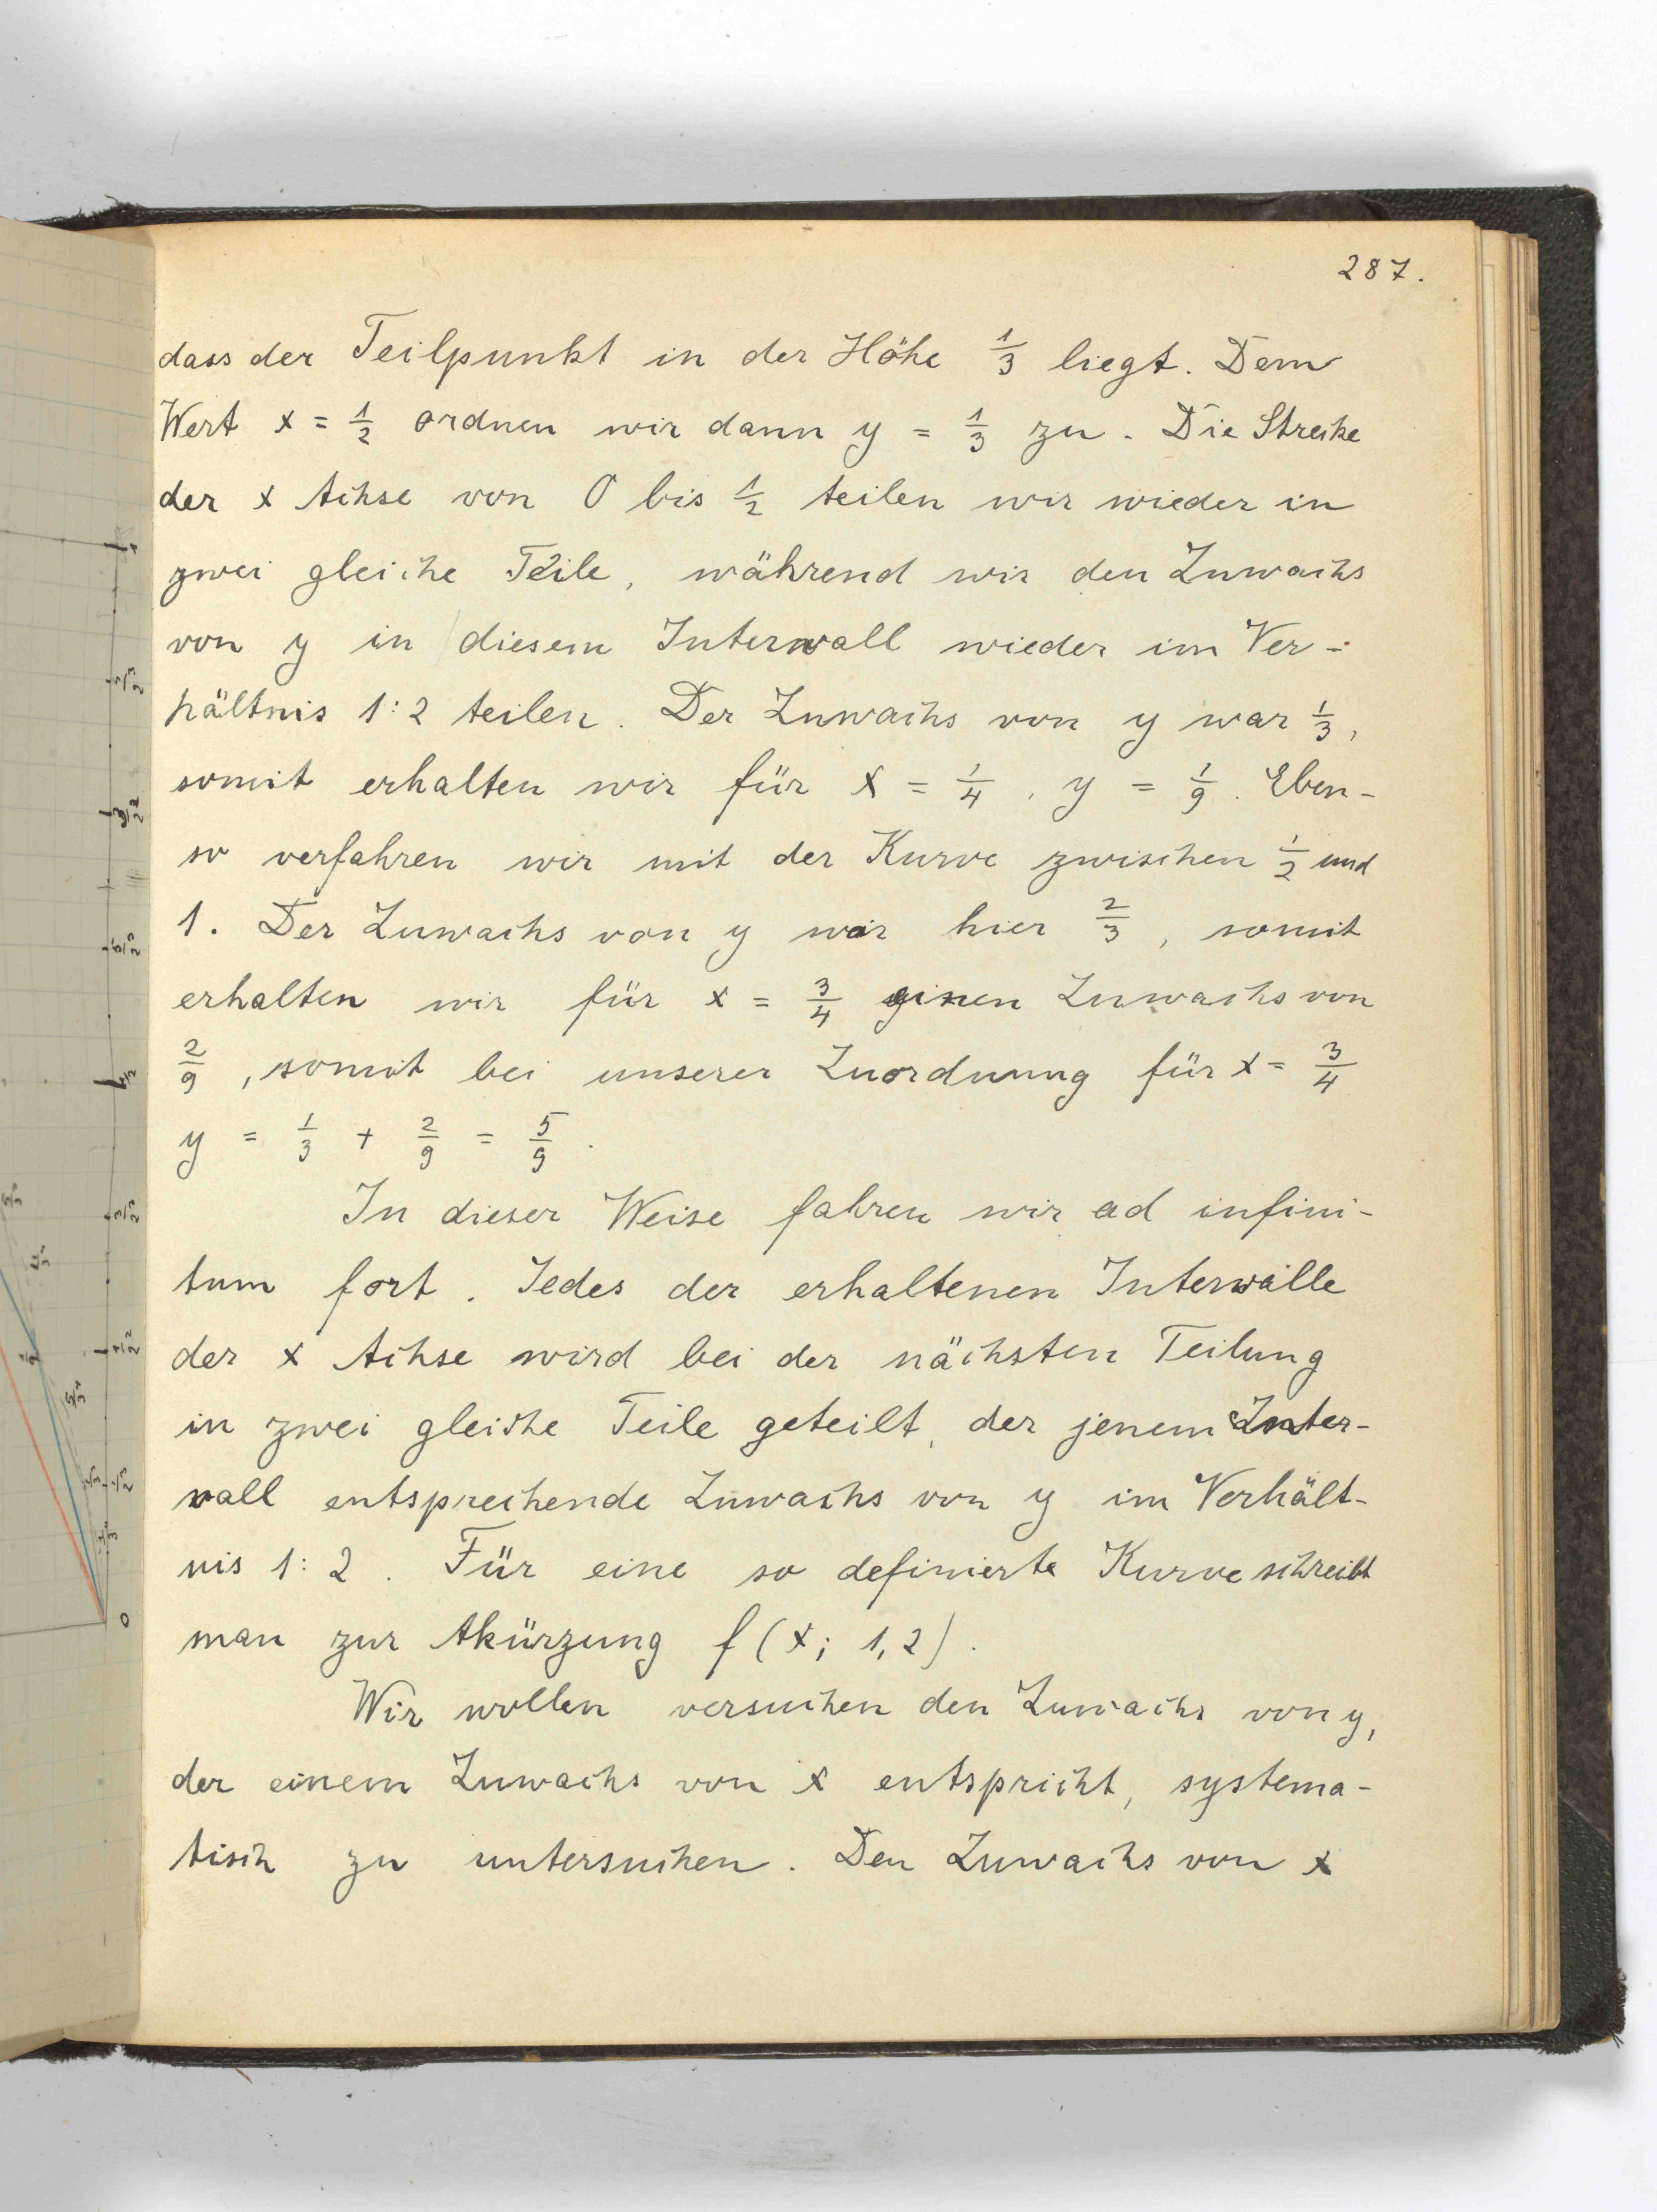 287.
dass der Teilpunkt in der Höhe 1/3 liegt. Dem
Wert x = 1/2 ordnen wir dann y = 1/3 zu. Die Strecke
der x Achse von 0 bis 1/2 teilen wir wieder in
zwei gleiche Teile, während wir den Zuwachs
von y in diesem Intervall wieder im Ver-
hältnis 1:2 teilen. Der Zuwachs von y war 1/3,
somit erhalten wir für x = 1/4, y = 1/9. Eben-
so verfahren wir mit der Kurve zwischen 1/2 und
1. Der Zuwachs von y war hier 2/3, somit
erhalten wir für x = 3/4 einen Zuwachs von
2/9, somit bei unserer Zuordnung für x = 3/4
y = 1/3 + 2/9 = 5/9.
In dieser Weise fahren wir ad infini-
tum fort. Jedes der erhaltenen Intervalle
der x Achse wird bei der nächsten Teilung
in zwei gleiche Teile geteilt, der jenem Inter-
vall entsprechende Zuwachs von y im Verhält-
nis 1:2. Für eine so definierte Kurve schreibt
man zur Akürzung f(x; 1,2).
Wir wollen versuchen den Zuwachs von y,
der einem Zuwachs von x entspricht, systema-
tisch zu untersuchen. Den Zuwachs von x
0